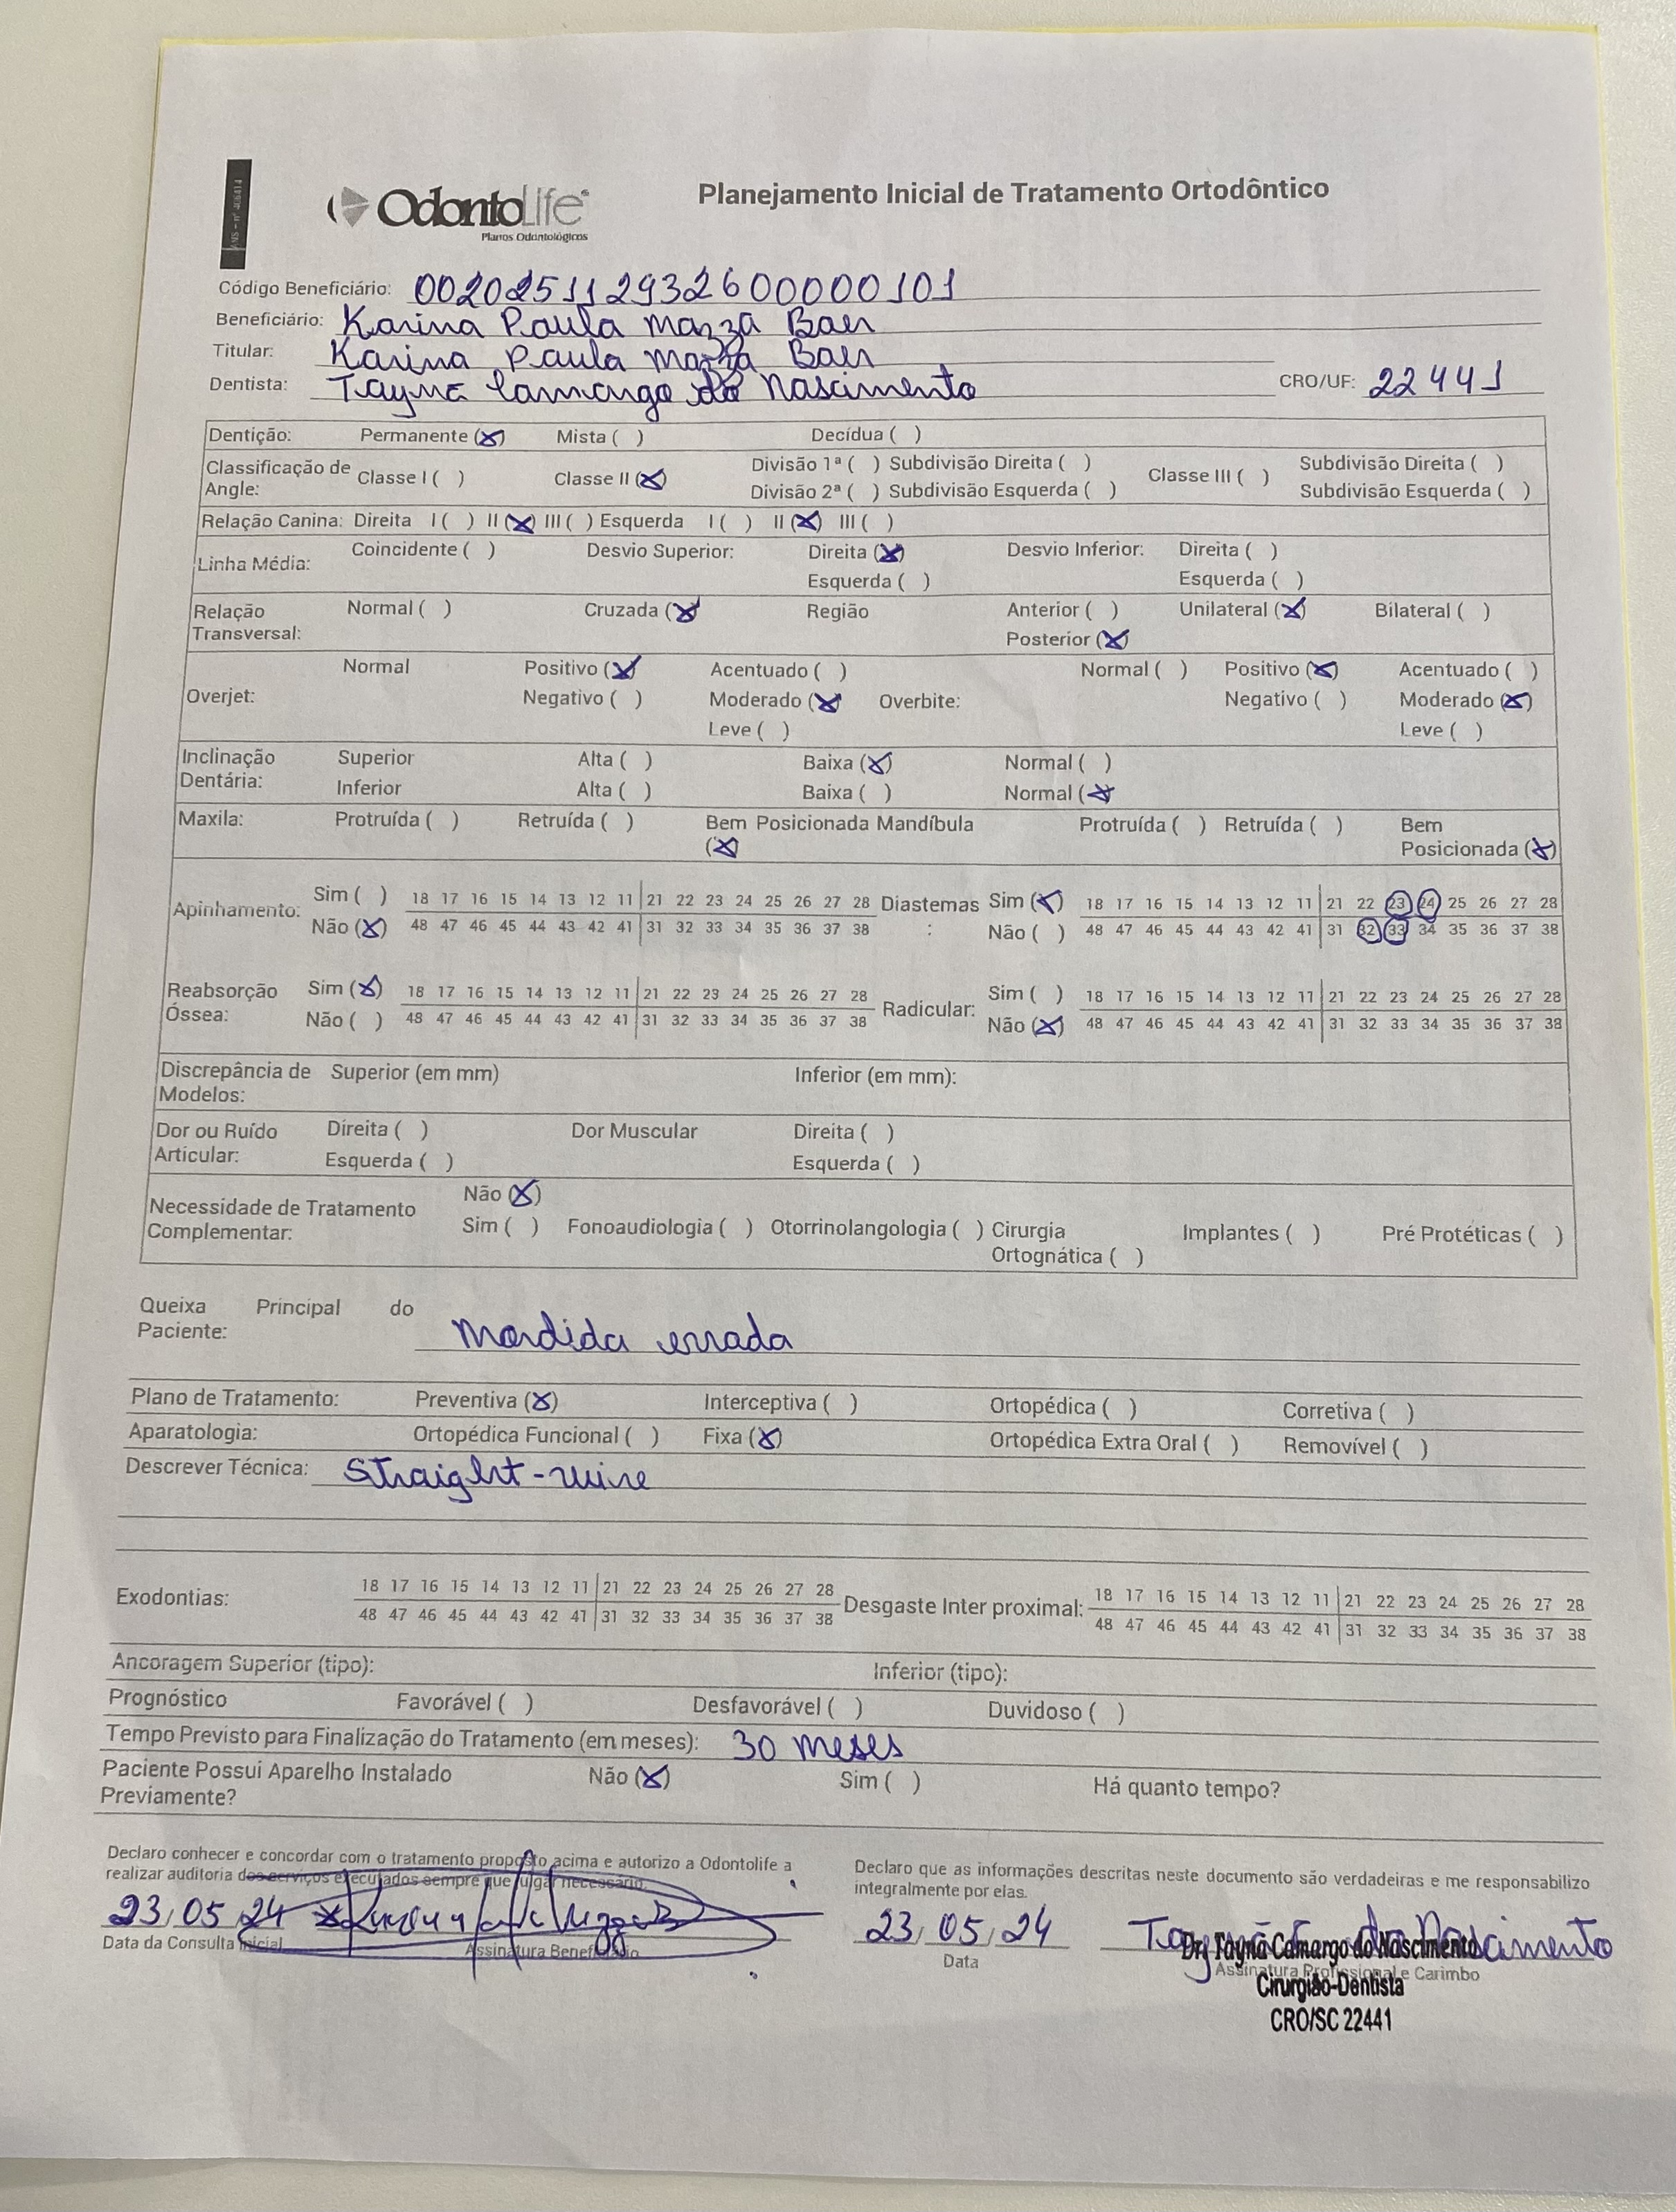 ANS - nº 406414
OdontoLife®
Planos Odontológicos
Planejamento Inicial de Tratamento Ortodôntico
Código Beneficiário: 00202511293260000101
Beneficiário: Karina Paula Mazza Baer
Titular: Karina Paula Mazza Baer
Dentista: Tayná Camargo do Nascimento CRO/UF: 22441
Dentição: Permanente (X) Mista ( ) Decídua ( )
Classificação de Angle: Classe I ( ) Classe II (X) Divisão 1ª ( ) Subdivisão Direita ( ) Classe III ( ) Subdivisão Direita ( )
Divisão 2ª ( ) Subdivisão Esquerda ( ) Subdivisão Esquerda ( )
Relação Canina: Direita I ( ) II (X) III ( ) Esquerda I ( ) II (X) III ( )
Linha Média: Coincidente ( ) Desvio Superior: Direita (X) Desvio Inferior: Direita ( )
Esquerda ( ) Esquerda ( )
Relação Transversal: Normal ( ) Cruzada (X) Região Anterior ( ) Unilateral (X) Bilateral ( )
Posterior (X)
Normal Positivo (X) Acentuado ( ) Normal ( ) Positivo (X) Acentuado ( )
Overjet: Negativo ( ) Moderado (X) Overbite: Negativo ( ) Moderado (X)
Leve ( ) Leve ( )
Inclinação Dentária: Superior Alta ( ) Baixa (X) Normal ( )
Inferior Alta ( ) Baixa ( ) Normal (X)
Maxila: Protruída ( ) Retruída ( ) Bem Posicionada Mandíbula Protruída ( ) Retruída ( ) Bem
(X) Posicionada (X)
Apinhamento: Sim ( ) 18 17 16 15 14 13 12 11 21 22 23 24 25 26 27 28 Diastemas : Sim (X) 18 17 16 15 14 13 12 11 21 22 23 24 25 26 27 28
Não (X) 48 47 46 45 44 43 42 41 31 32 33 34 35 36 37 38 Não ( ) 48 47 46 45 44 43 42 41 31 32 33 34 35 36 37 38
Reabsorção Óssea: Sim (X) 18 17 16 15 14 13 12 11 21 22 23 24 25 26 27 28 Radicular: Sim ( ) 18 17 16 15 14 13 12 11 21 22 23 24 25 26 27 28
Não ( ) 48 47 46 45 44 43 42 41 31 32 33 34 35 36 37 38 Não (X) 48 47 46 45 44 43 42 41 31 32 33 34 35 36 37 38
Discrepância de Modelos: Superior (em mm) Inferior (em mm):
Dor ou Ruído Articular: Direita ( ) Dor Muscular Direita ( )
Esquerda ( ) Esquerda ( )
Necessidade de Tratamento Complementar: Não (X)
Sim ( ) Fonoaudiologia ( ) Otorrinolangologia ( ) Cirurgia Ortognática ( ) Implantes ( ) Pré Protéticas ( )
Queixa Principal do
Paciente: Mordida errada
Plano de Tratamento: Preventiva (X) Interceptiva ( ) Ortopédica ( ) Corretiva ( )
Aparatologia: Ortopédica Funcional ( ) Fixa (X) Ortopédica Extra Oral ( ) Removível ( )
Descrever Técnica: Straight-wire
Exodontias: 18 17 16 15 14 13 12 11 21 22 23 24 25 26 27 28 Desgaste Inter proximal: 18 17 16 15 14 13 12 11 21 22 23 24 25 26 27 28
48 47 46 45 44 43 42 41 31 32 33 34 35 36 37 38 48 47 46 45 44 43 42 41 31 32 33 34 35 36 37 38
Ancoragem Superior (tipo): Inferior (tipo):
Prognóstico Favorável ( ) Desfavorável ( ) Duvidoso ( )
Tempo Previsto para Finalização do Tratamento (em meses): 30 meses
Paciente Possui Aparelho Instalado Não (X) Sim ( ) Há quanto tempo?
Previamente?
Declaro conhecer e concordar com o tratamento proposto acima e autorizo a Odontolife a
realizar auditoria dos serviços executados sempre que julgar necessário.
23/05/24
Data da Consulta Inicial Assinatura Beneficiário
Declaro que as informações descritas neste documento são verdadeiras e me responsabilizo
integralmente por elas.
23/05/24 Tayná C. do Nascimento
Data Assinatura Profissional e Carimbo
Drª Tayná Camargo do Nascimento
Cirurgião-Dentista
CRO/SC 22441